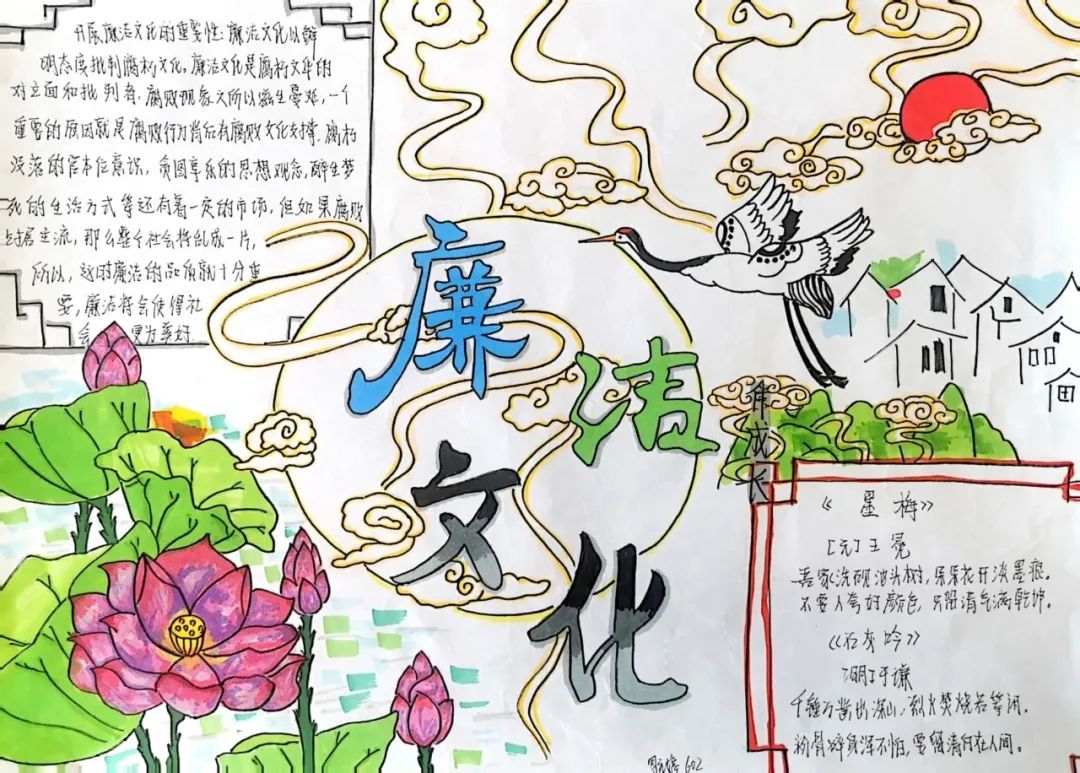 开展廉洁文化的重要性：廉洁文化以鲜
明态度批判腐朽文化，廉洁文化是腐朽文华的
对立面和批判者，腐败现象之所以滋生蔓延，一个
重要的原因就是腐败行为背后有腐败文化支撑，腐朽
没落的官本位意识，贪图享乐的思想观念，醉生梦
死的生活方式等还有着一定的市场，但如果腐败
主流，那么整个社会将乱成一片，
所以，这时廉洁的品质就十分重
要，廉洁将会使得社
会更为美好
廉洁
文化
伴成长
《星梅》
[元]王冕
吾家洗砚池头树，朵朵花开淡墨痕。
不要人夸好颜色，只留清气满乾坤。
《石灰吟》
[明]于谦
千锤万凿出深山，烈火焚烧若等闲。
粉骨碎身浑不怕，要留清白在人间。
602